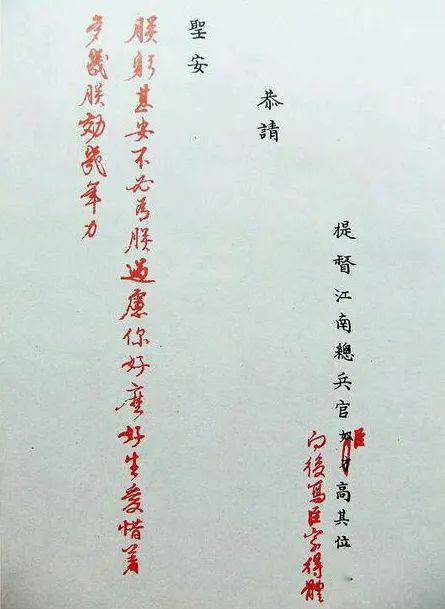 提督江南總兵官奴才高其位
臣
向後寫臣字得體
恭請
聖安
朕躬甚安不必為朕過慮你好麽好生愛惜着
多幾朕効幾年力